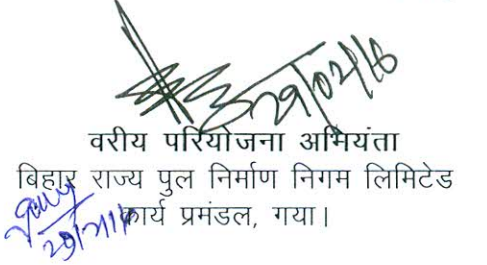 29/02/16
वरीय परियोजना अभियंता
बिहार राज्य पुल निर्माण निगम लिमिटेड
कार्य प्रमंडल, गया।